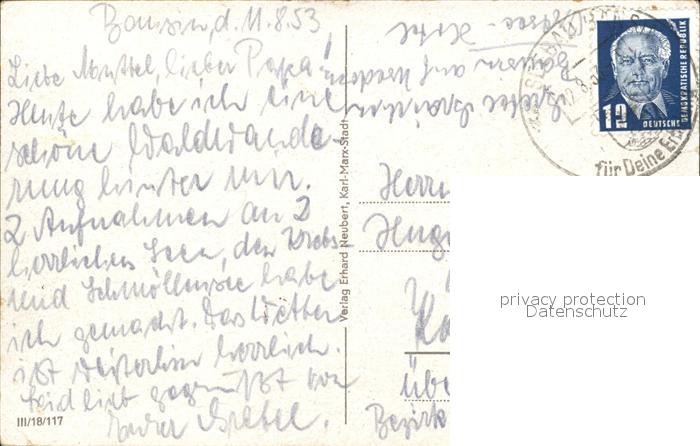 Bansin, d. 11.8.53
Liebe Muttel, lieber Pappa!
Heute habe ich eine
schöne Waldwande-
rung hinter mir.
2 Aufnahmen an 2
herrlichen Seen, den Krebs-
und Schmollensee habe
ich gemacht. Das Wetter
ist weiterhin herrlich.
Seid lieb gegrüßt von
Eurer Gretel.
III/18/117
Verlag Erhard Neubert, Karl-Marx-Stadt
Ostsee-Hotel
Bansin auf Usedom
Gretel
12
DEUTSCHE
DEMOKRATISCHE REPUBLIK
für Deine
Herrn
Hug
Bezirk
privacy protection
Datenschutz